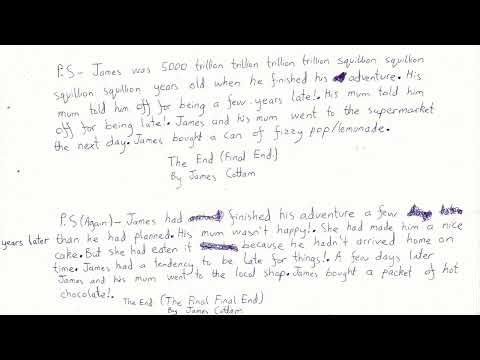 P.S - James was 5000 trillion trillion trillion trillion squillion squillion
squillion squillion years old when he finished his adventure. His
mum told him off for being a few years late!. His mum told him
off for being late!. James and his mum went to the supermarket
the next day. James bought a can of fizzy pop/lemonade.
The End (Final End.)
By James Cottam
P.S (Again) - James had finished his adventure a few
years later than he had planned. His mum wasn't happy!. She had made him a nice
cake. But she had eaten it because he hadn't arrived home on
time. James had a tendency to be late for things!. A few days later
James and his mum went to the local shop. James bought a packet of hot
chocolate!. The End (The Final Final End)
By James Cottam